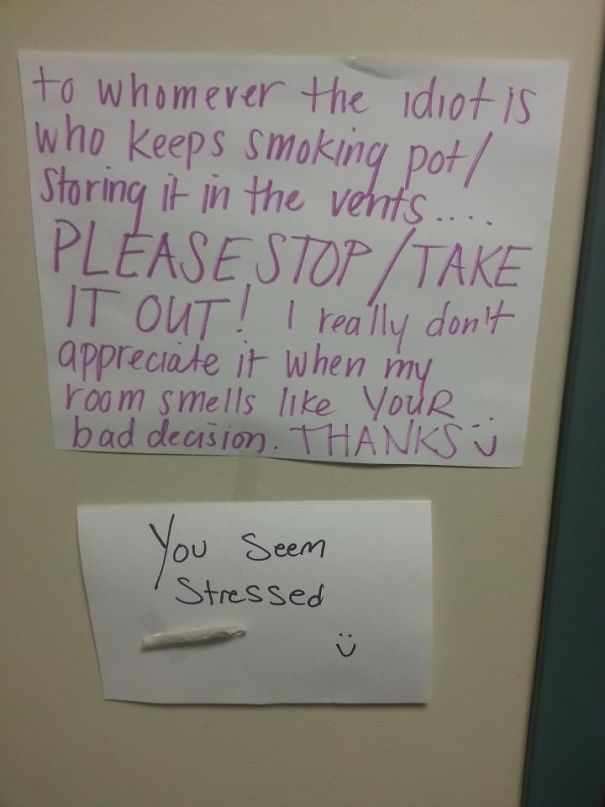 to whomever the idiot is
who keeps smoking pot/
Storing it in the vents....
PLEASE STOP/TAKE
IT OUT! I really don't
appreciate it when my
room smells like YOUR
bad decision. THANKS :)
You Seem
Stressed
:)